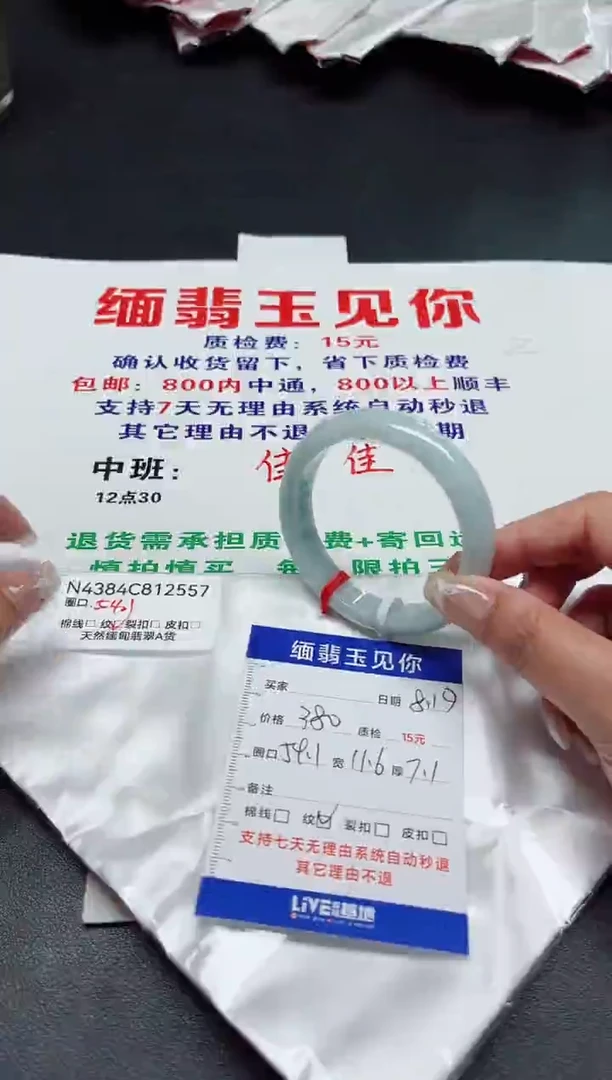 缅翡玉见你
质检费：15元
确认收货留下，省下质检费
包邮：800内中通，800以上顺丰
支持7天无理由系统自动秒退
其它理由不退 期
中班： 佳 佳
12点30
退货需承担质 费+寄回
慎拍慎买 限拍三
N4384C812557
圈口: 54.1
棉线□ 纹☑ 裂扣□ 皮扣□
天然缅甸翡翠A货
缅翡玉见你
买家 日期 8.19
价格 380 质检 15元
圈口 54.1 宽 11.6 厚 7.1
备注
棉线□ 纹☑ 裂扣□ 皮扣□
支持七天无理由系统自动秒退
其它理由不退
LiVE 基地